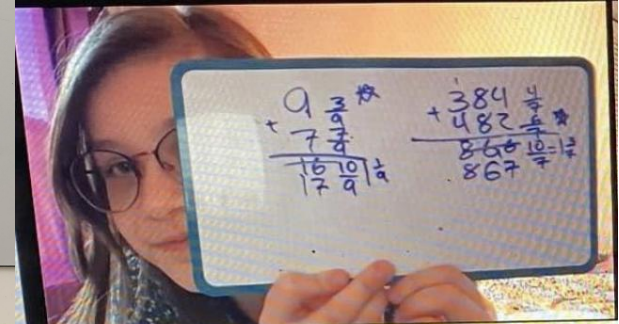 9 3/9
+ 7 7/9
16 10/9 1 1/9
17
384 4/7
+ 482 6/7
866 10/7 = 1 3/7
867